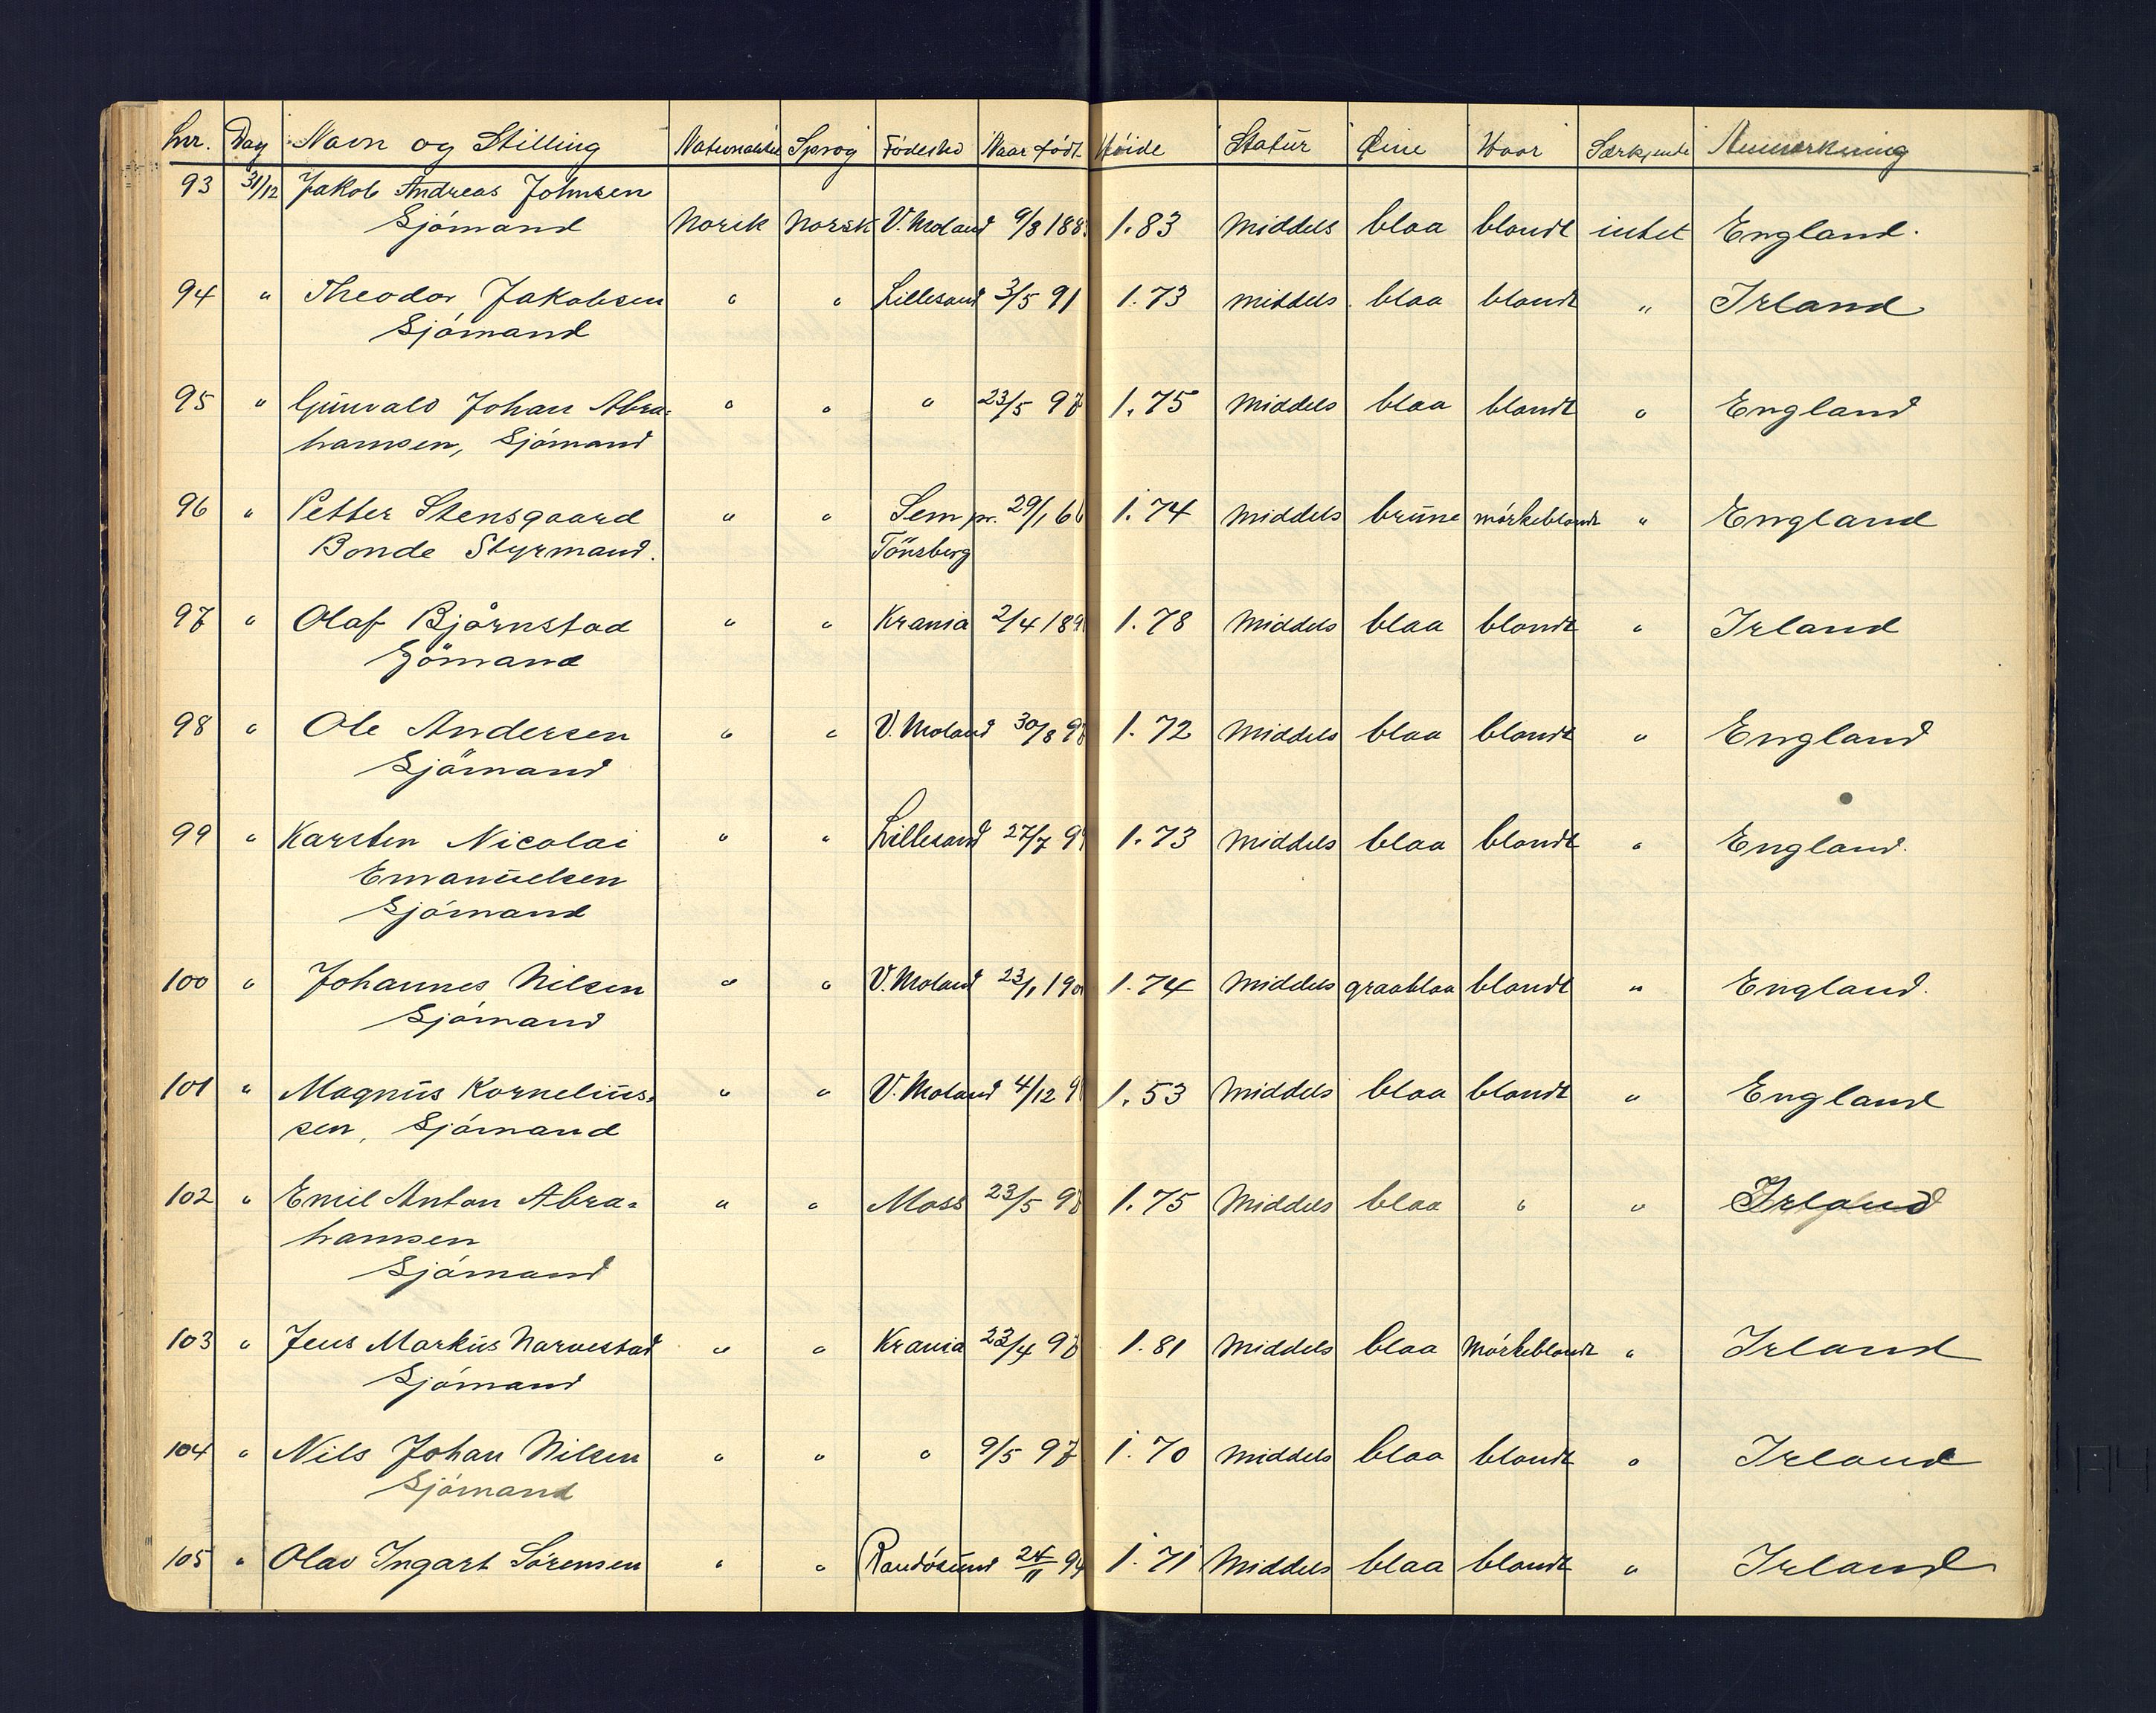 Lnr. Dag Navn og Stilling Nationalitet Sprog Födested Naar födt Höide Statur Öine Haar Særkjende Anmerkning
93 31/12 Jakob Andreas Johnsen
Sjömand Norsk Norsk V. Moland 9/8 188 1.83 Middels blaa blondt intet England.
94 " Theodor Jakobsen " " Lillesand 3/5 91 1.73 middels blaa blondt " Irland
Sjömand
95 " Gunvald Johan Abra= " " " 23/5 97 1.75 Middels blaa blondt " England
hamsen, Sjömand
96 " Petter Stensgaard " " Sem pr. 29/1 66 1.74 Middels brune mörkeblondt " England
Bonde Styrmand. Tönsberg
97 " Olaf Björnstad " " Krania 2/4 189 1.78 Middels blaa blondt " Irland
Sjömand
98 " Ole Andersen " " V. Moland 30/8 98 1.72 Middels blaa blondt " England
Sjömand
99 " Karsten Nicolai " " Lillesand 27/7 9 1.73 Middels blaa blondt " England.
Emanuelsen
Sjömand
100 " Johannes Nilsen " " V. Moland 23/1 190 1.74 Middels graablaa blondt " England.
Sjömand
101 " Magnus Kornelius= " " V. Moland 4/12 9 1.53 Middels blaa blondt " England
sen, Sjömand
102 " Emil Anton Abra= " " Moss 23/5 98 1.75 Middels blaa " " Irland
hamsen
Sjömand
103 " Jens Markus Narvestad " " Krania 23/4 97 1.81 Middels blaa Mörkeblondt " Irland
Sjömand
104 " Nils Johan Nilsen " " " 9/5 97 1.70 Middels blaa blondt " Irland
Sjömand
105 " Olav Ingart Sörensen " " Randösund 24/11 94 1.71 Middels blaa blondt " Irland